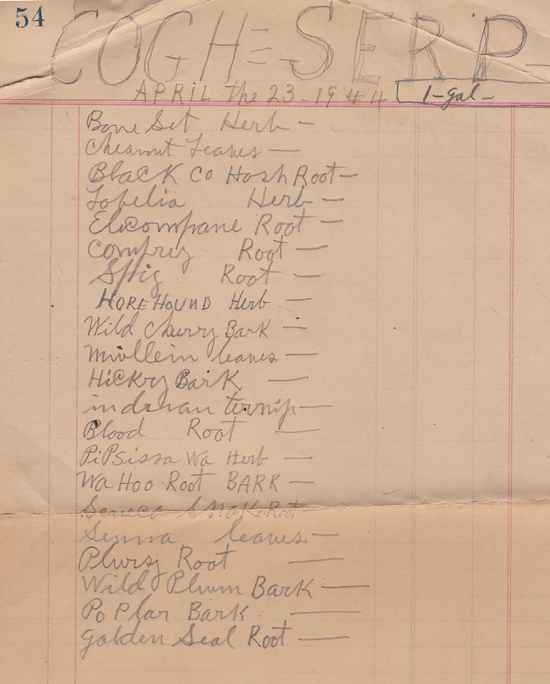 54
COGH = SERP-
APRIL the 23-1944 1-gal-
Bone Set Herb -
Chesnut Leaves -
BlacK Co Hosh Root-
Lobelia Herb -
Elicompane Root -
Comfrey Root -
Spig Root -
HOREHOUND Herb -
Wild Cherry Bark -
Mullein leaves -
HicKry BarK -
indian ternip -
Blood Root -
PiPSissa Wa Herb -
Wa Hoo Root BARK -
Seneca SNaKeRoot
Senna leaves -
Plursy Root -
Wild Plum Bark -
PoPlar Bark -
golden Seal Root -